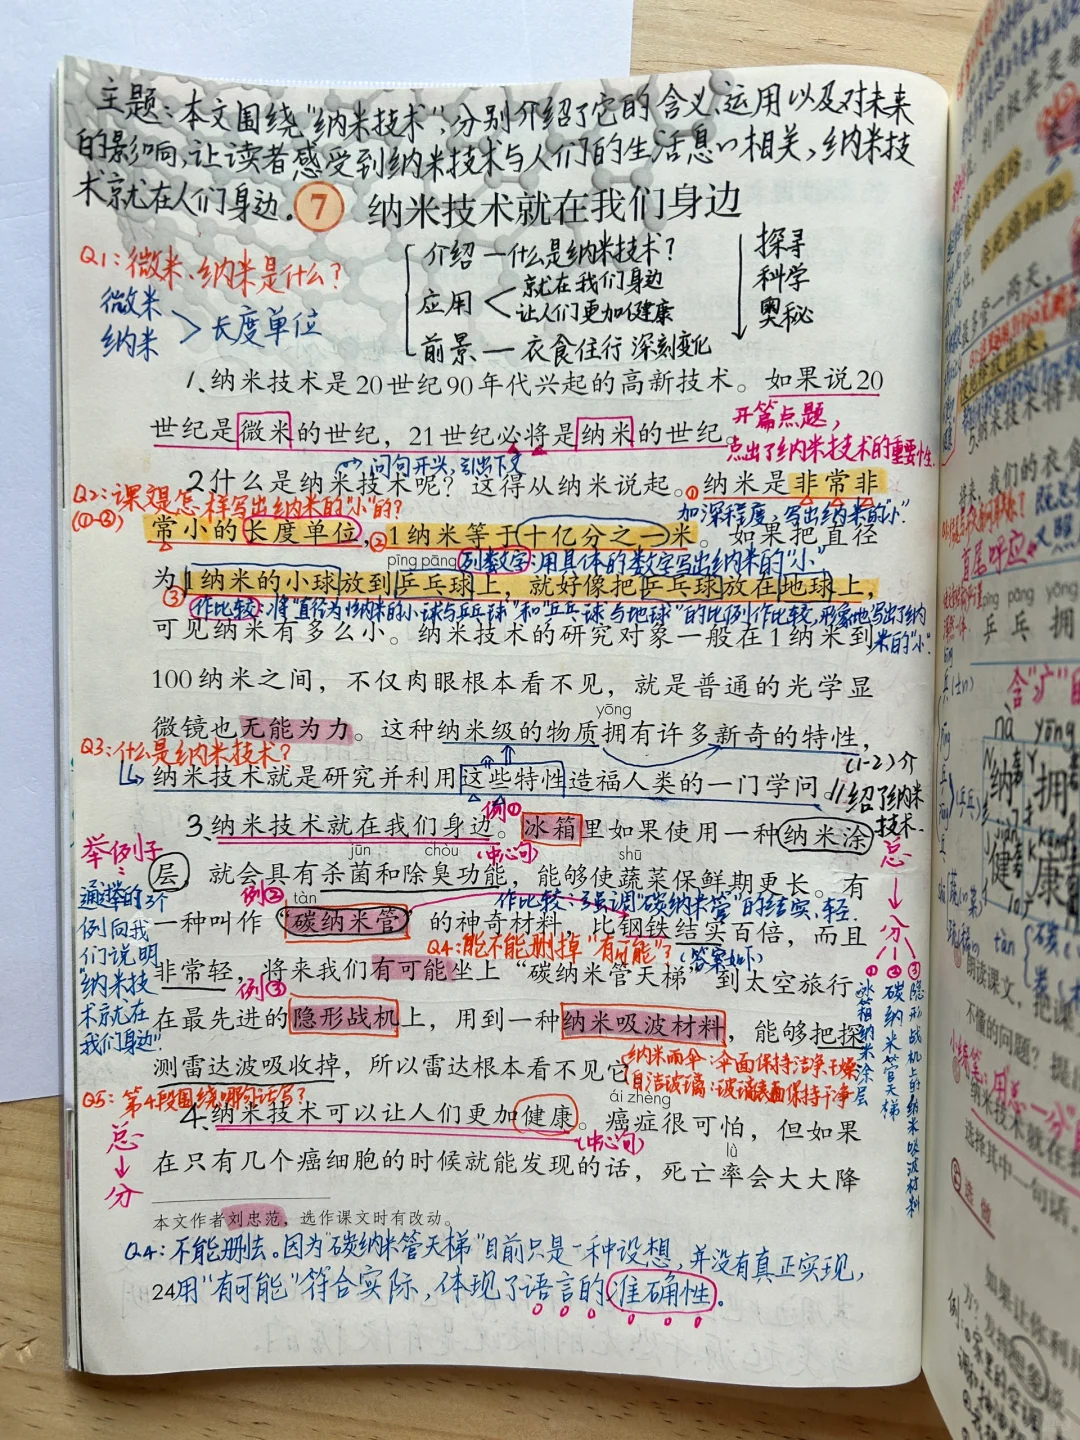 主题：本文围绕“纳米技术”，分别介绍了它的含义、运用以及对未来
的影响，让读者感受到纳米技术与人们的生活息息相关，纳米技
术就在人们身边。
7 纳米技术就在我们身边
Q1：微米、纳米是什么？
微米
纳米
> 长度单位
介绍—什么是纳米技术？
应用 < 就在我们身边
让人们更加健康
前景—衣食住行 深刻变化
探寻
科学
奥秘
1、纳米技术是20世纪90年代兴起的高新技术。如果说20
世纪是微米的世纪，21世纪必将是纳米的世纪。
开篇点题，
点出了纳米技术的重要性。
问句开头，引出下文
2.什么是纳米技术呢？这得从纳米说起。①纳米是非常非
Q2：课文是怎样写出纳米的“小”的？
(①-③)
加深程度，写出纳米的“小”.
常小的长度单位，②1纳米等于十亿分之一米。如果把直径
pīng pāng
列数字：用具体的数字写出纳米的“小”
为1纳米的小球放到乒乓球上，就好像把乒乓球放在地球上，
③作比较：将“直径为1纳米的小球与乒乓球”和“乒乓球与地球”的比例作比较，形象地写出了纳
米的“小”.
可见纳米有多么小。纳米技术的研究对象一般在1纳米到
100纳米之间，不仅肉眼根本看不见，就是普通的光学显
微镜也无能为力。这种纳米级的物质拥有许多新奇的特性，
yōng
Q3：什么是纳米技术？
纳米技术就是研究并利用这些特性造福人类的一门学问。
(1-2)介
绍了纳米
技术.
例①
3、纳米技术就在我们身边。冰箱里如果使用一种纳米涂
(中心句)
jūn chòu shū
层，就会具有杀菌和除臭功能，能够使蔬菜保鲜期更长。有
例② tàn
作比较：强调“碳纳米管”的结实、轻.
一种叫作“碳纳米管”的神奇材料，比钢铁结实百倍，而且
Q4：能不能删掉“有可能”？(答案如下)
非常轻，将来我们有可能坐上“碳纳米管天梯”到太空旅行。
例③
在最先进的隐形战机上，用到一种纳米吸波材料，能够把探
测雷达波吸收掉，所以雷达根本看不见它。
纳米雨伞：伞面保持洁净干燥
自洁玻璃：玻璃表面保持干净
举例子
：
通过举的3个
例向我
们说明
“纳米技
术就在
我们身边”.
总
↓
分
①冰箱纳米涂层
②碳纳米管天梯
③隐形战机上的纳米吸波材料
Q5：第4段围绕哪句话写？
ái zhèng
4.纳米技术可以让人们更加健康。癌症很可怕，但如果
(中心句)
lǜ
在只有几个癌细胞的时候就能发现的话，死亡率会大大降
总
↓
分
本文作者刘忠范，选作课文时有改动。
Q4：不能删去。因为“碳纳米管天梯”目前只是一种设想，并没有真正实现，
24用“有可能”符合实际，体现了语言的准确性。
首尾呼应
pīng pāng yōng
乒 乓 拥
nà yōng
纳 拥
健 康
朗读课文，把课
不懂的问题？提
选择其中一句话，
选做
如果让你利用